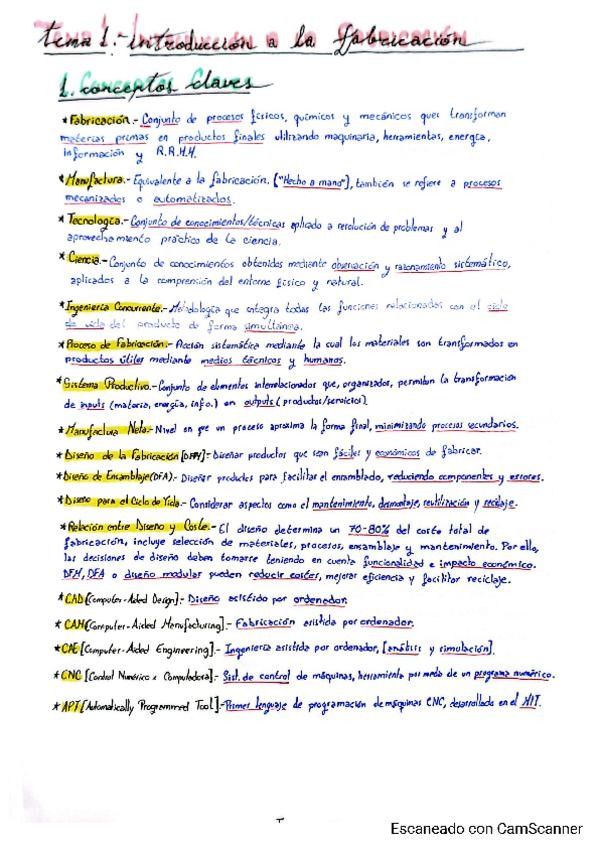 Tema 1.- Introducción a la fabricación
1. Conceptos Claves
* Fabricación.- Conjunto de procesos físicos, químicos y mecánicos ques transforman
materias primas en productos finales utilizando maquinaria, herramientas, energía,
información y R.R.H.H.
* Manufactura.- Equivalente a la fabricación. ["Hecho a mano"], también se refiere a procesos
mecanizados o automatizados.
* Tecnología.- Conjunto de conocimientos/técnicas aplicado a resolución de problemas y al
aprovechamiento práctico de la ciencia.
* Ciencia.- Conjunto de conocimientos obtenidos mediante observación y razonamiento sistemático,
aplicados a la comprensión del entorno físico y natural.
* Ingeniería Concurrente.- Metodología que integra todas las funciones relacionadas con el ciclo
de vida del producto de forma simultánea.
* Proceso de Fabricación.- Acción sistemática mediante la cual los materiales son transformados en
productos útiles mediante medios técnicos y humanos.
* Sistema Productivo.- Conjunto de elementos interrelacionados que, organizados, permiten la transformación
de inputs (materia, energía, info.) en outputs (productos/servicios).
* Manufactura Neta.- Nivel en que un proceso aproxima la forma final, minimizando procesos secundarios.
* Diseño de la Fabricación [DFM].- Diseñar productos que sean fáciles y económicos de fabricar.
* Diseño de Ensamblaje (DFA).- Diseñar productos para facilitar el ensamblado, reduciendo componentes y errores.
* Diseño para el Ciclo de Vida.- Considerar aspectos como el mantenimiento, desmontaje, reutilización y reciclaje.
* Relación entre Diseño y Coste.- El diseño determina un 70-80% del coste total de
fabricación, incluye selección de materiales, procesos, ensamblaje y mantenimiento. Por ello,
las decisiones de diseño deben tomarse teniendo en cuenta funcionalidad e impacto económico.
DFM, DFA o diseño modular pueden reducir costes, mejorar eficiencia y facilitar reciclaje.
* CAD [Computer-Aided Design].- Diseño asistido por ordenador.
* CAM [Computer-Aided Manufacturing].- Fabricación asistida por ordenador.
* CAE [Computer-Aided Engineering].- Ingeniería asistida por ordenador, [análisis y simulación].
* CNC [Control Numérico x Computadora].- Sist. de control de máquinas, herramienta por medio de un programa numérico.
* APT [Automatically Programmed Tool].- Primer lenguaje de programación de máquinas CNC, desarrollado en el MIT.
Escaneado con CamScanner